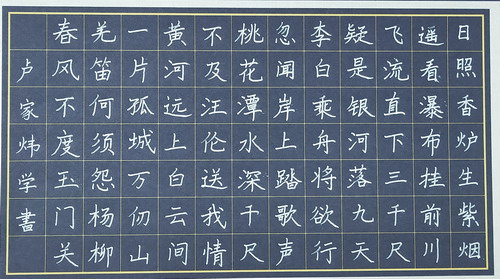 日照香炉生紫烟
遥看瀑布挂前川
飞流直下三千尺
疑是银河落九天
李白乘舟将欲行
忽闻岸上踏歌声
桃花潭水深千尺
不及汪伦送我情
黄河远上白云间
一片孤城万仞山
羌笛何须怨杨柳
春风不度玉门关
卢家炜学書